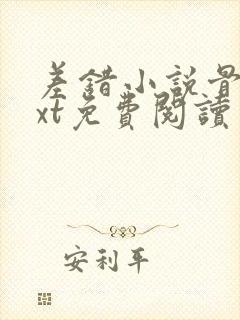 差錯小說最
xt免費閱讀
安利平